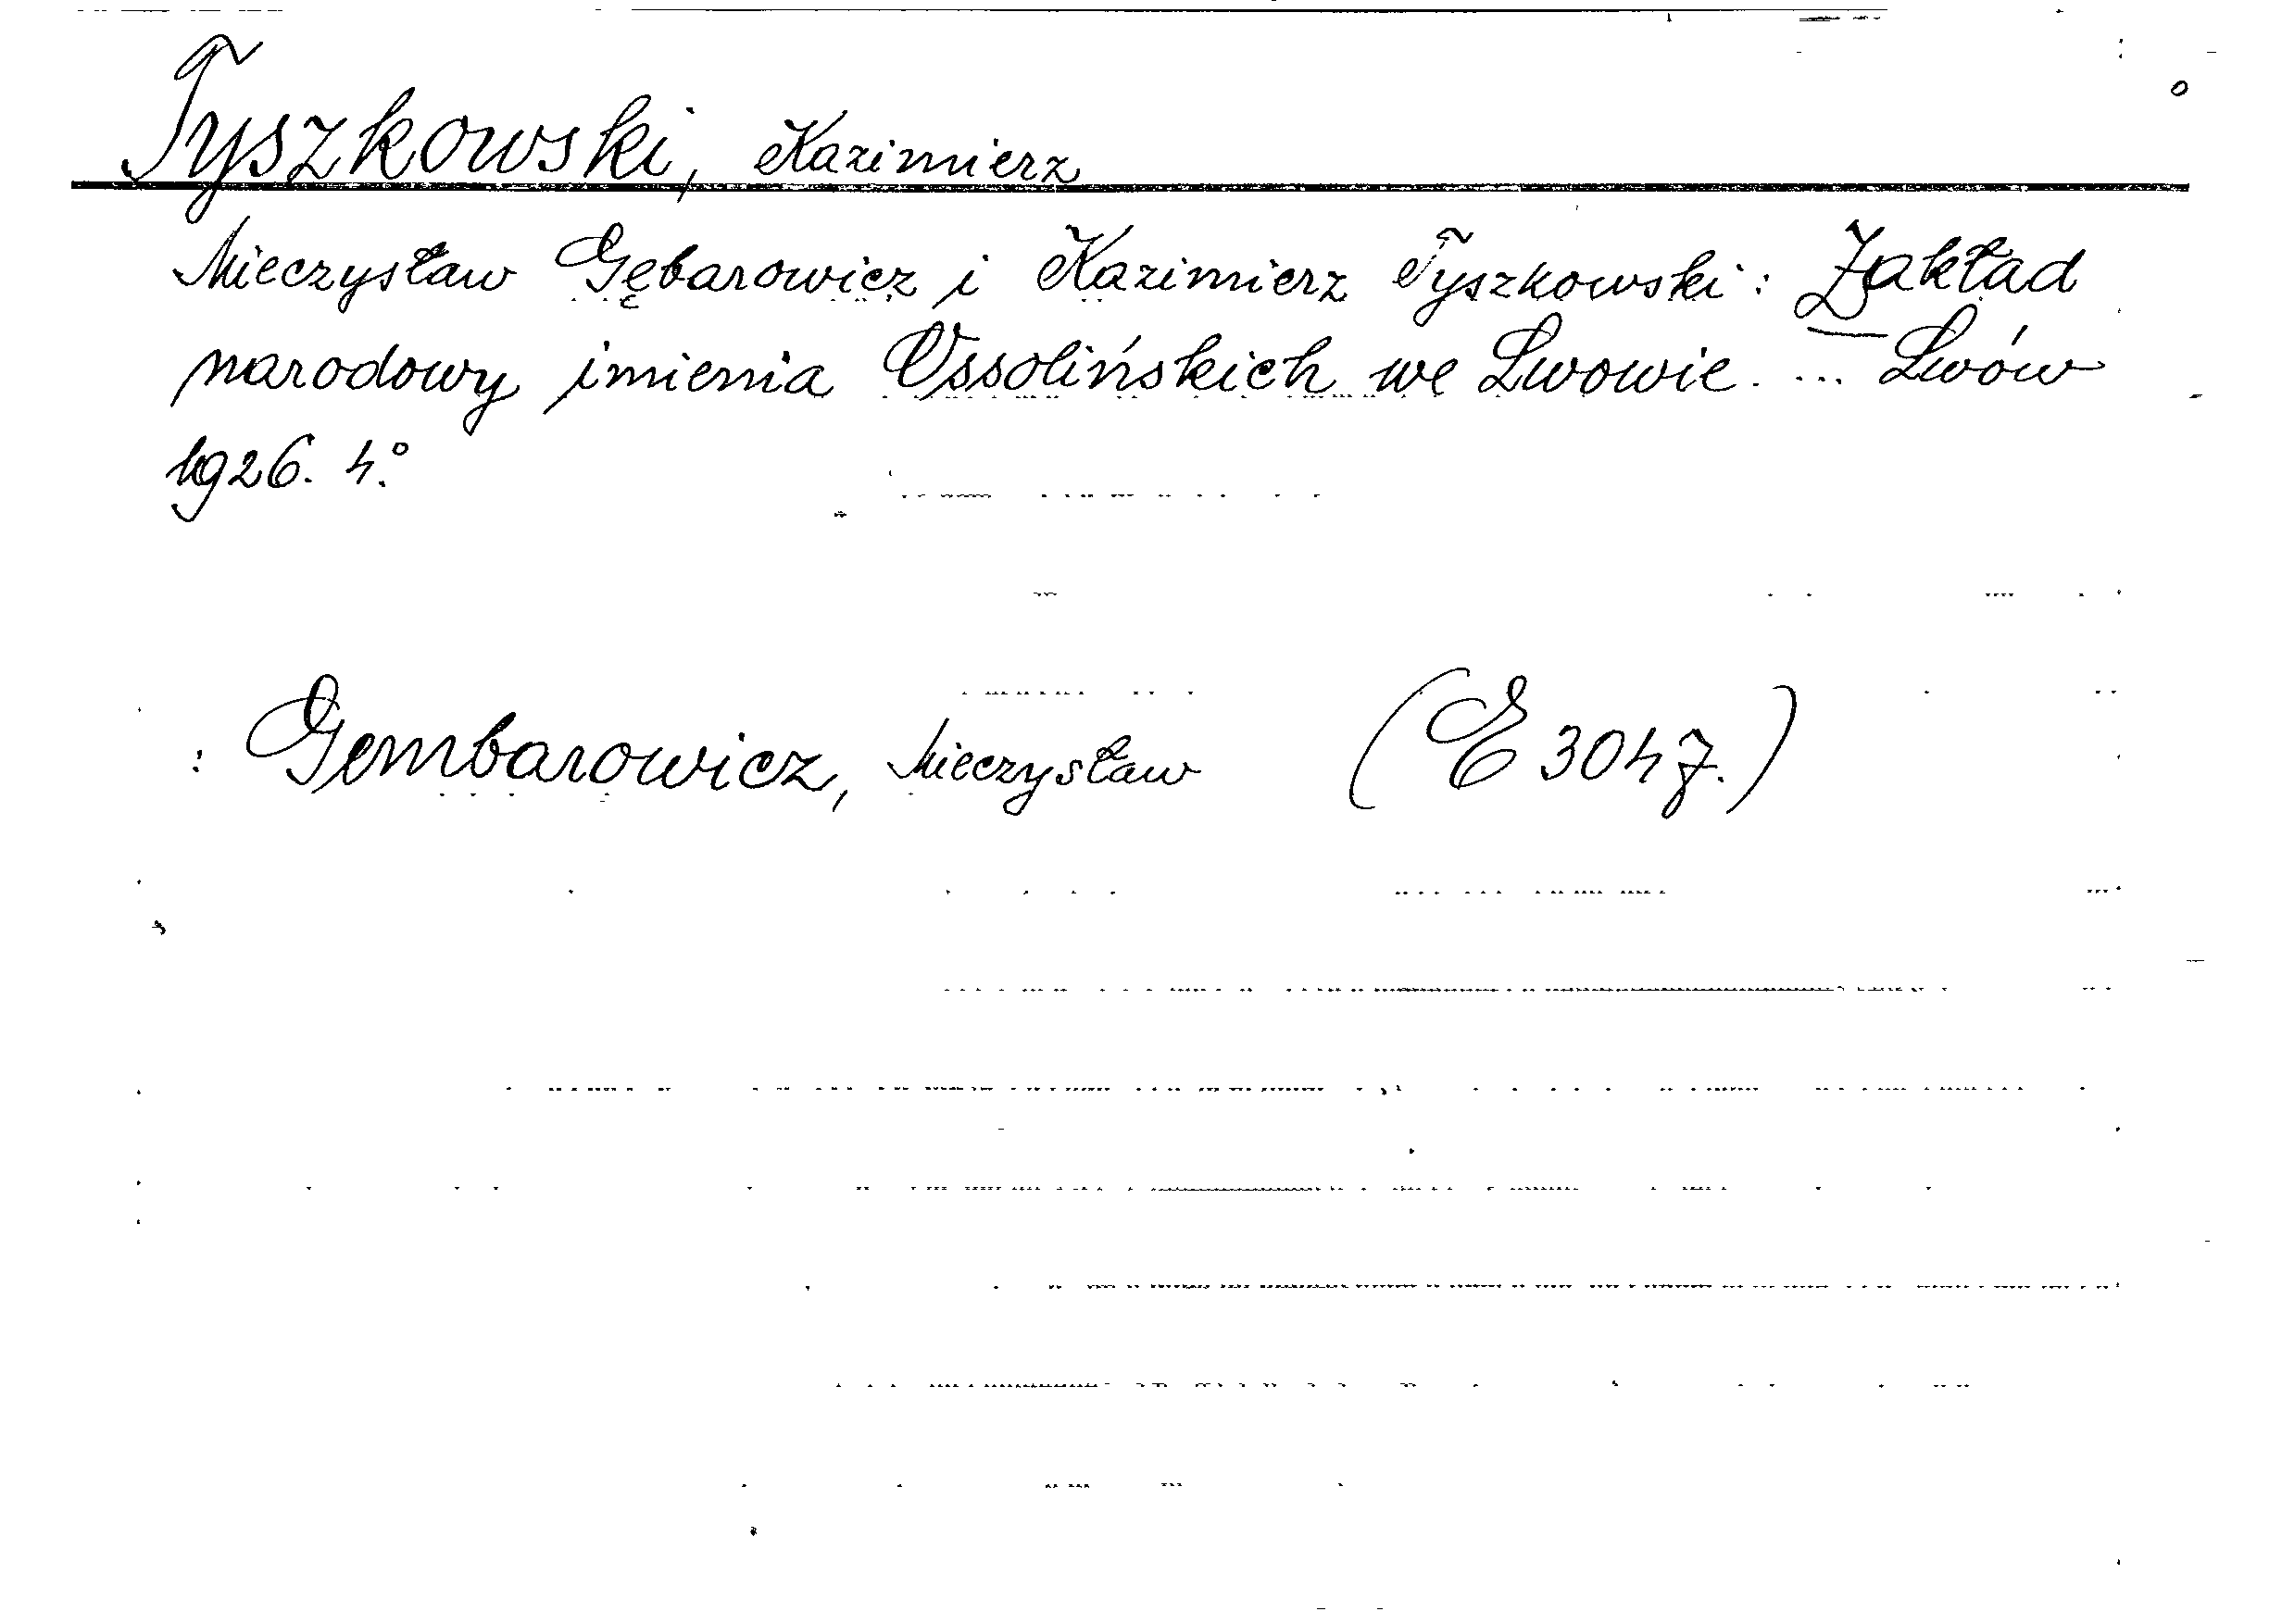 Tyszkowski, Kazimierz
Mieczysław Gębarowicz i Kazimierz Tyszkowski: Zakład
narodowy imienia Ossolińskich we Lwowie. ... Lwów
1926. 4.°
: Gembarowicz, Mieczysław (E 3047.)